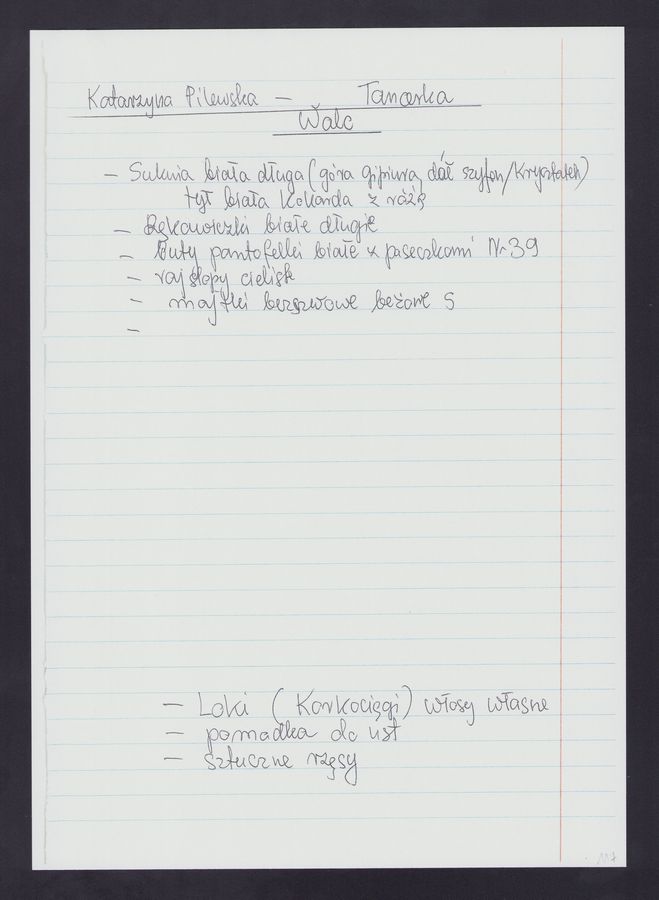 Katarzyna Pilewska — Tancerka
Walc
— Suknia biała długa (góra gipiura, dół szyfon/Kryształek)
tył biała Kokarda z różą
— Rękawiczki białe długie
— Buty pantofelki białe z paseczkami Nr 39
— rajstopy cieliste
— majtki bezszwowe beżowe S
—
— Loki (Korkociągi) włosy własne
— pomadka do ust
— sztuczne rzęsy
117